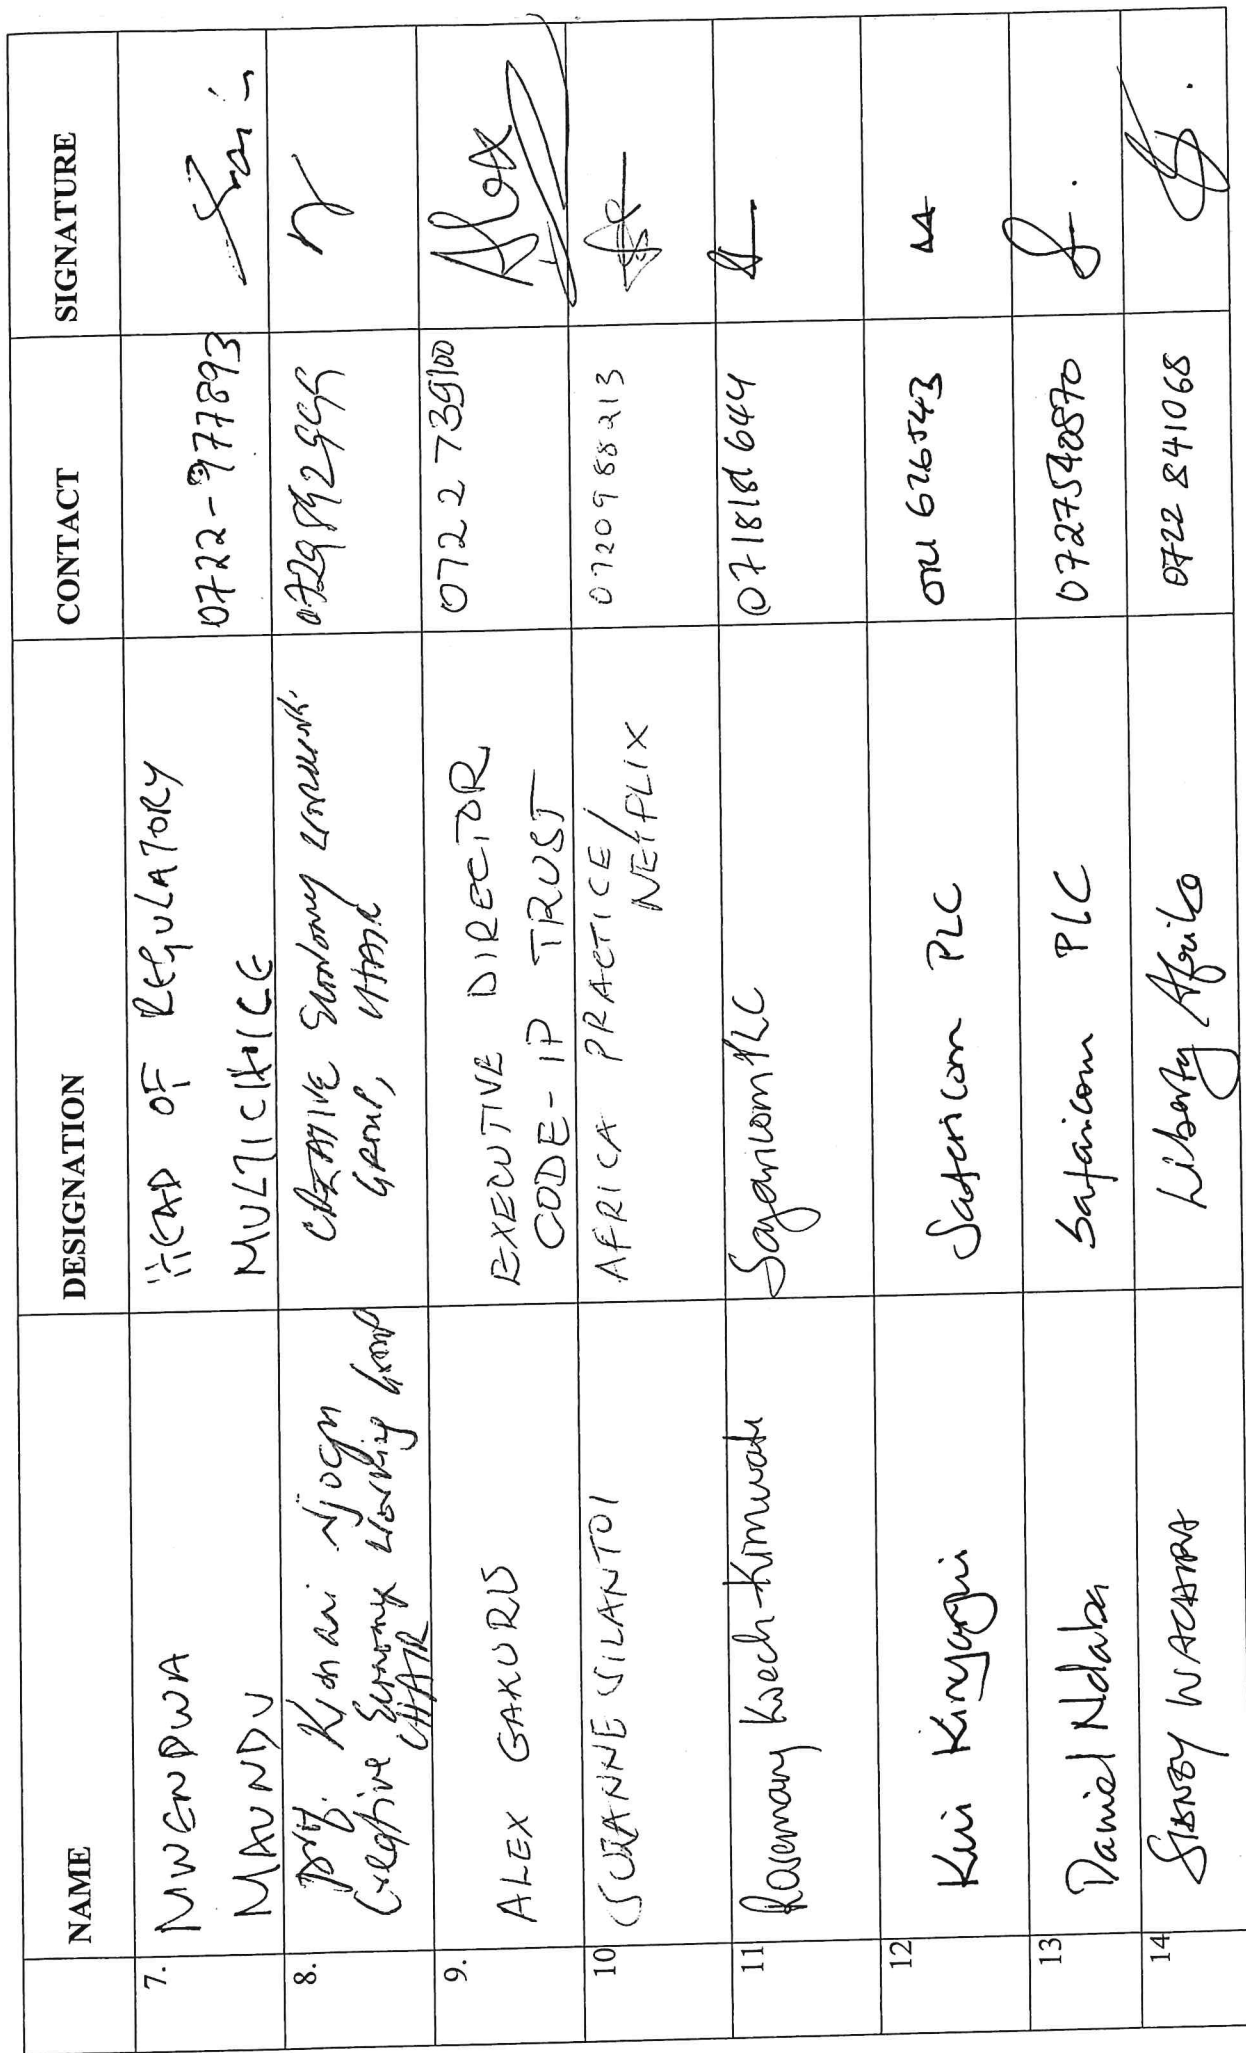 NAME DESIGNATION CONTACT SIGNATURE
7. MWENDWA MAUNDU HEAD OF REGULATORY MULTICHOICE 0722-977893
8. Prof. Kimani Njogu Creative Economy Working Group CHAIR CREATIVE Economy WORKING GROUP, CHAIR
9. ALEX GAKURU EXECUTIVE DIRECTOR CODE-IP TRUST 0722 739100 Alex
10 SUZANNE SILANTOI AFRICA PRACTICE/ NETFLIX 0720988213
11 Rosemary Koech-Kimwatu Safaricom PLC
12 Kui Kinyanjui Safaricom PLC
13 Daniel Ndaba Safaricom PLC 0727540870
14 WACHIRA Liberty Afrika 0722 841068